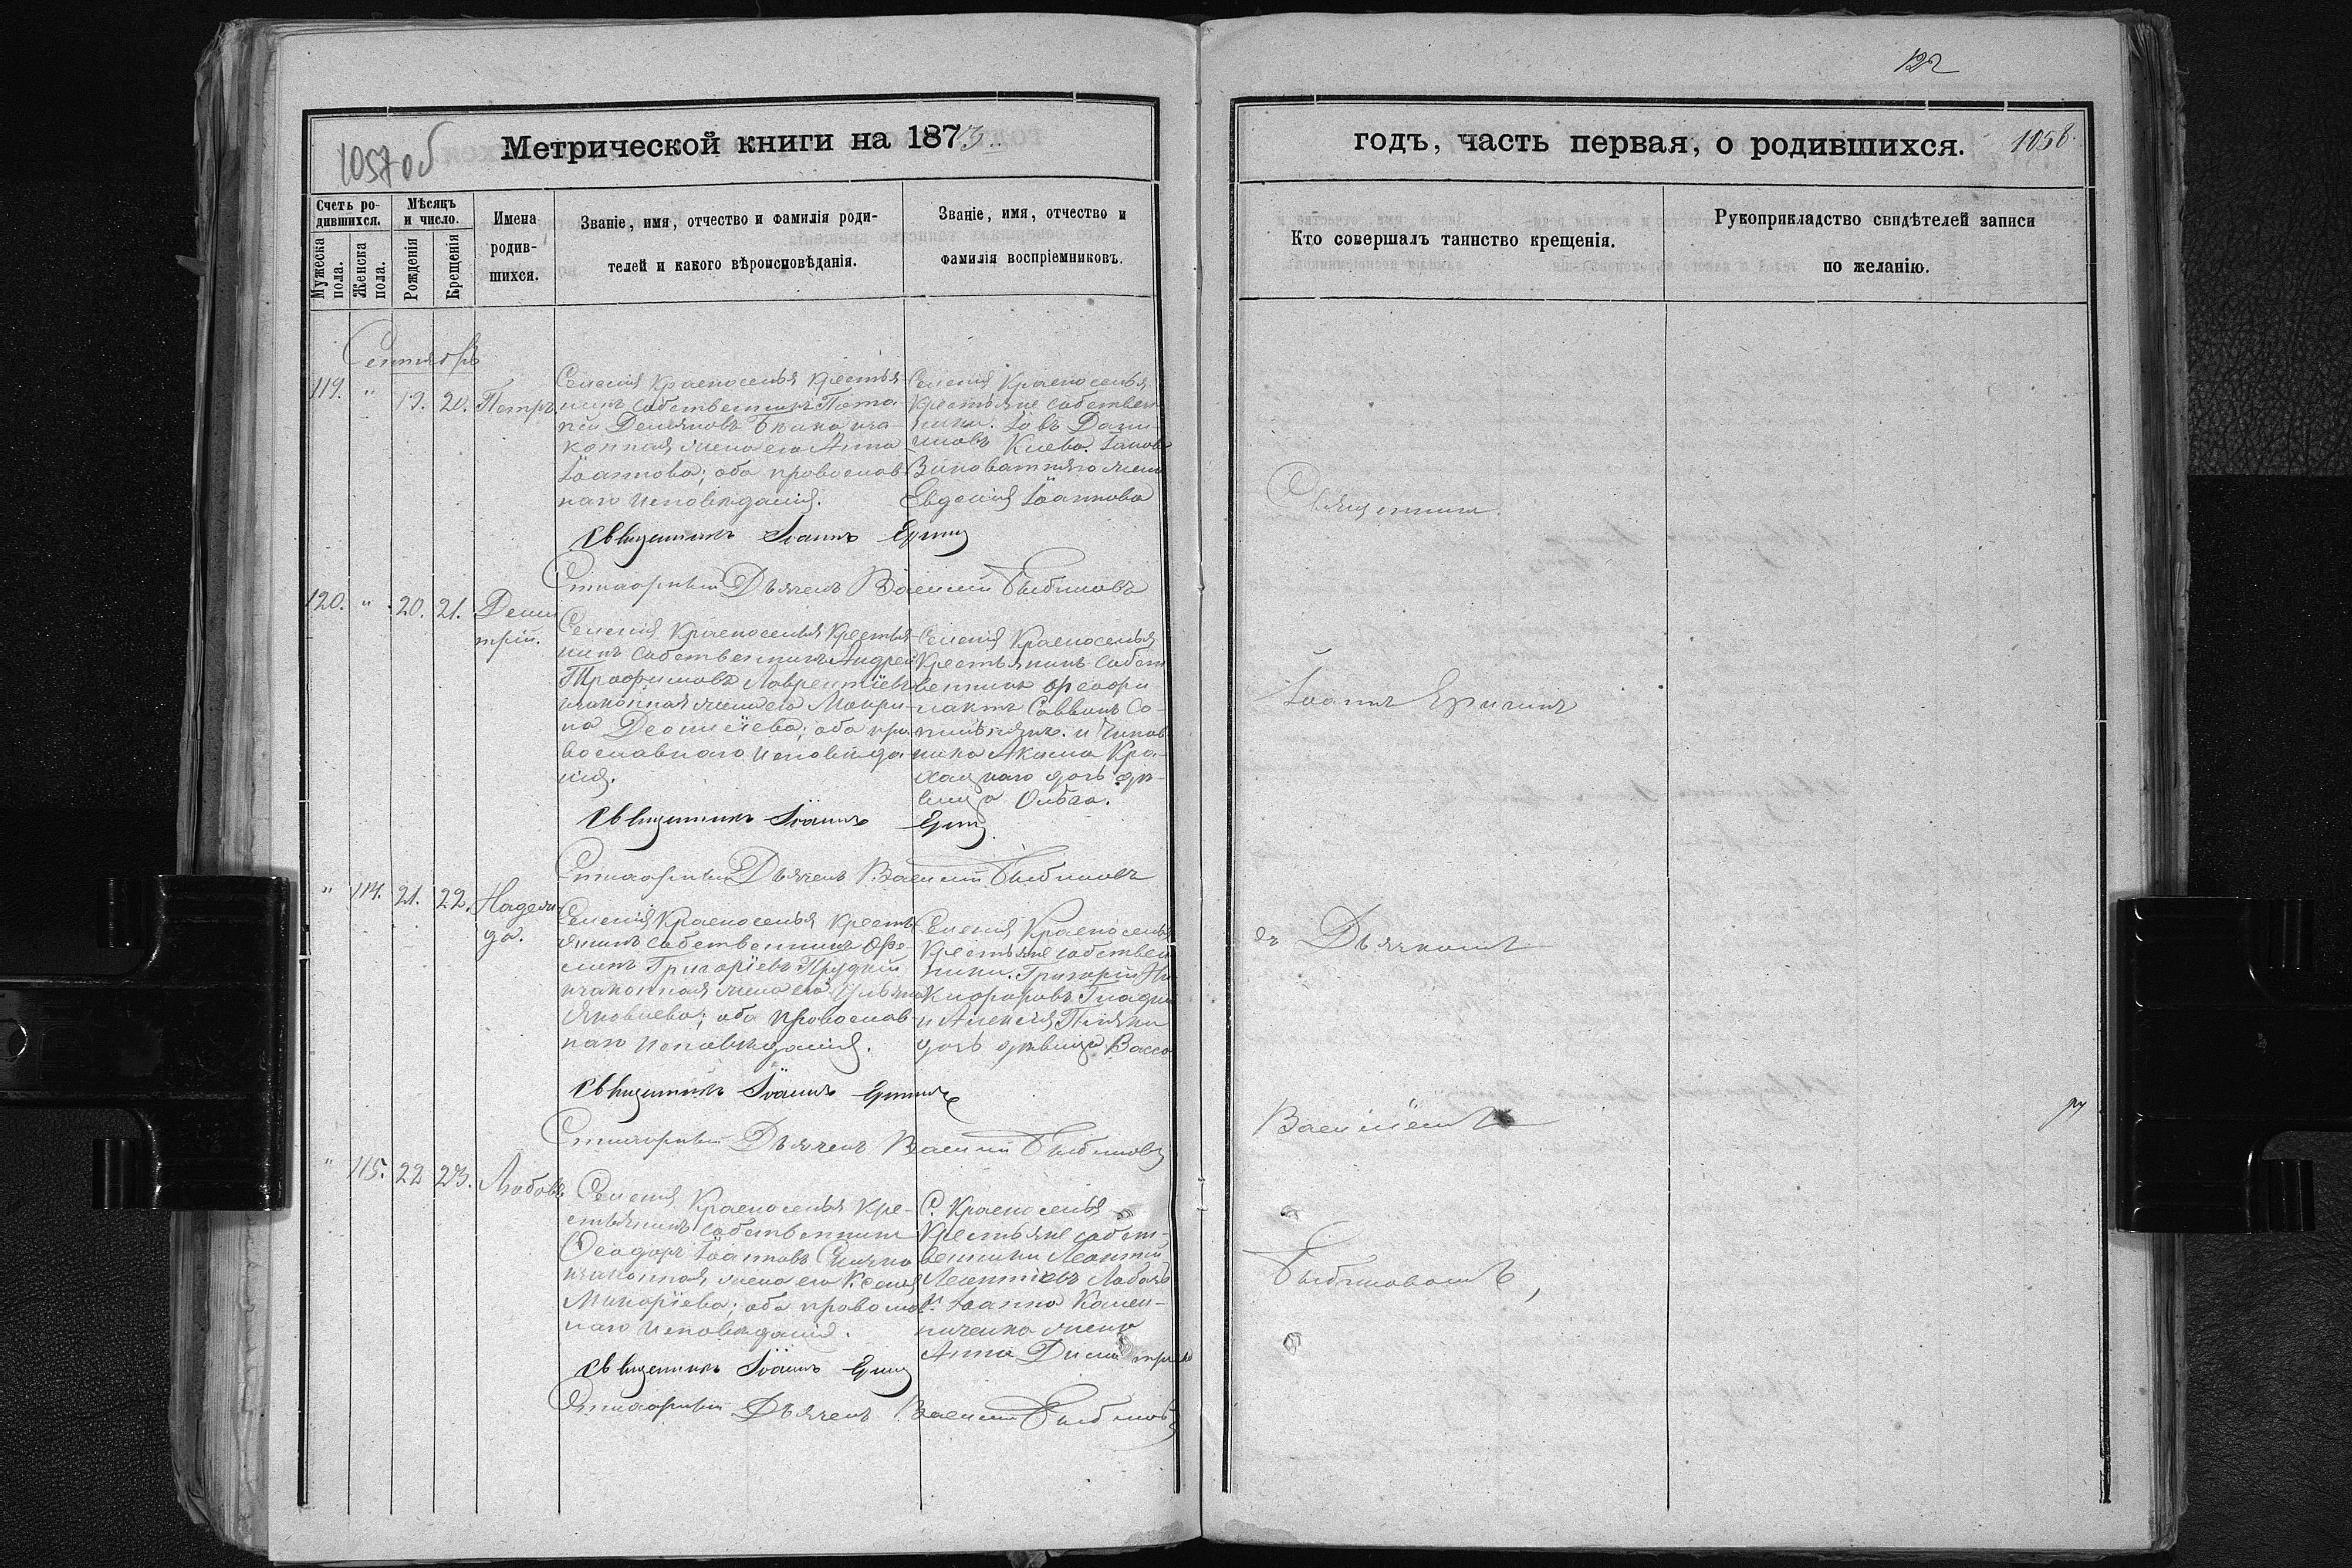 122
1057 об
Метрической книги на 1873
годъ, часть первая, о родившихся.
1058.
Счетъ родившихся.
Мужеска пола.
Женска пола.
Мѣсяцъ и число.
Рожденія
Крещенія
Имена родив-
шихся.
Званіе, имя, отчество и фамилія роди-
телей и какого вѣроисповѣданія.
Званіе, имя, отчество и
фамилія воспріемниковъ.
Кто совершалъ таинство крещенія.
Рукоприкладство свидѣтелей записи
по желанію.
Сентябрь
119. " 19. 20. Петръ.
Селенія Красноселья крестья-
нинъ собственникъ Пота-
пій Демяновъ
конная жена его Анна
Іоаннова; оба православ
наго исповѣданія.
Селенія Красноселья
крестьяне собствен
ники. Іовъ Дани-
иловъ Киева. Іаков
жена
Евдокія Іоаннова
Священникъ Іоаннъ
Стихарный Дьячекъ Василій
120. " 20. 21. Дими
трій.
Селенія Красноселья Крестья-
нинъ собственникъ Андрей
Трофимовъ Лаврентіевъ
изаконная жена его Маври-
на; оба пра-
вославнаго исповѣда
нія.
Селенія Красноселья
Крестьянинъ собст
венникъ
Саввинъ Со-
и чинов
ника Акима Кра-
дочь дѣ-
вица Ольга.
Священникъ Іоаннъ
Стихарный Дьячекъ Василій
" 114. 21. 22. Надеж
да.
Селенія Красноселья крестъ
янинъ собственникъ
Григоріевъ Прудкій
изаконная жена его Ульяна
Яковлева; оба православ-
наго исповѣданія.
Селенія Красноселья
Крестьяне собствен
ники. Григорій Ни
кифоровъ Гладкі
и Алексѣя
дочь дѣвица Васса
Священникъ Іоаннъ
Стихарный Дьячекъ Василій
" 115. 22 23. Любовь
Селенія Красноселья Кре-
стьянинъ собственникъ
Ѳеодоръ Іоанновъ
изаконная жена его Ксенія
Макаріева; оба православ
наго исповѣданія.
С. Красноселья
Крестьяне собст-
венники Леонтій
Леонтіевъ Лобачъ
и Іоанна Камен-
ниченка жена
Анна
Священникъ Іоаннъ
Стихарный Дьячекъ Василій
Священникъ
Іоаннъ
съ Дьячкомъ
Василіемъ